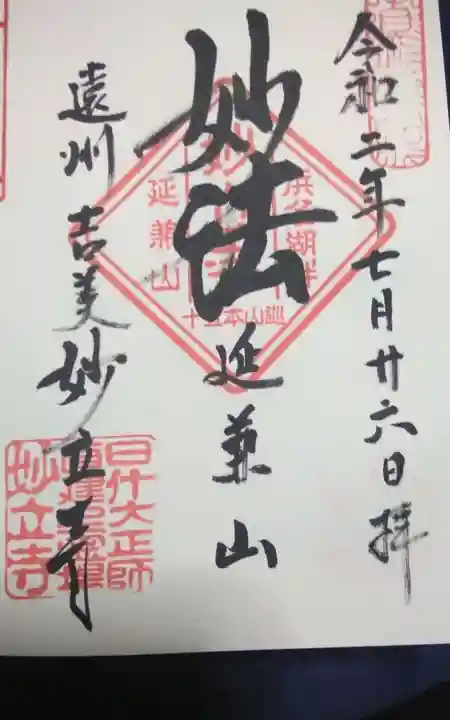 令和二年七月廿六日拝
妙法
延兼山
遠州吉美妙立寺
浜名湖畔
延兼山
妙立寺
日什大正師
妙立寺